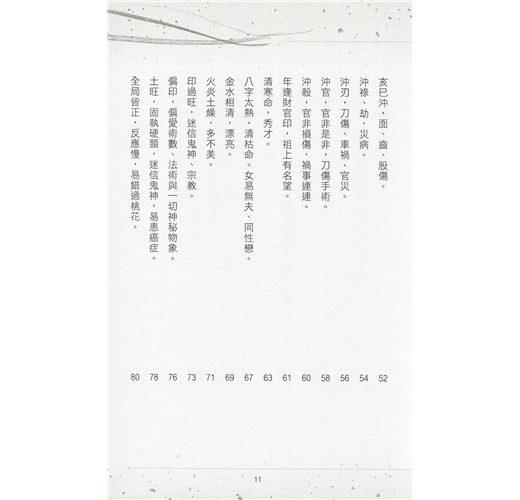 亥巳沖，面、齒、股傷。 52
沖祿、劫，災病。 54
沖刃，刀傷、車禍、官災。 56
沖官，官非是非，刀傷手術。 58
沖殺，官非損傷，禍事連連。 60
年逢財官印，祖上有名望。 61
清寒命，秀才。 63
八字太熱，清枯命。女易無夫、同性戀。 67
金水相清，漂亮。 69
火炎土燥，多不美。 71
印過旺，迷信鬼神、宗教。 73
偏印，偏愛術數、法術與一切神秘物象。 76
土旺，固執硬頸、迷信鬼神，易患癌症。 78
全局皆正，反應慢，易錯過桃花。 80
11